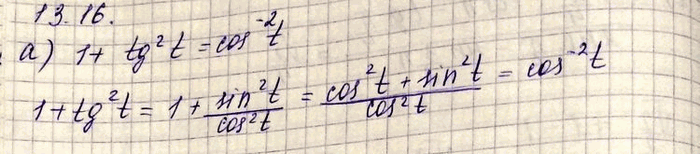 13.16.
а) 1 + tg²t = cos⁻²t
1 + tg²t = 1 + sin²t/cos²t = (cos²t + sin²t)/cos²t = cos⁻²t